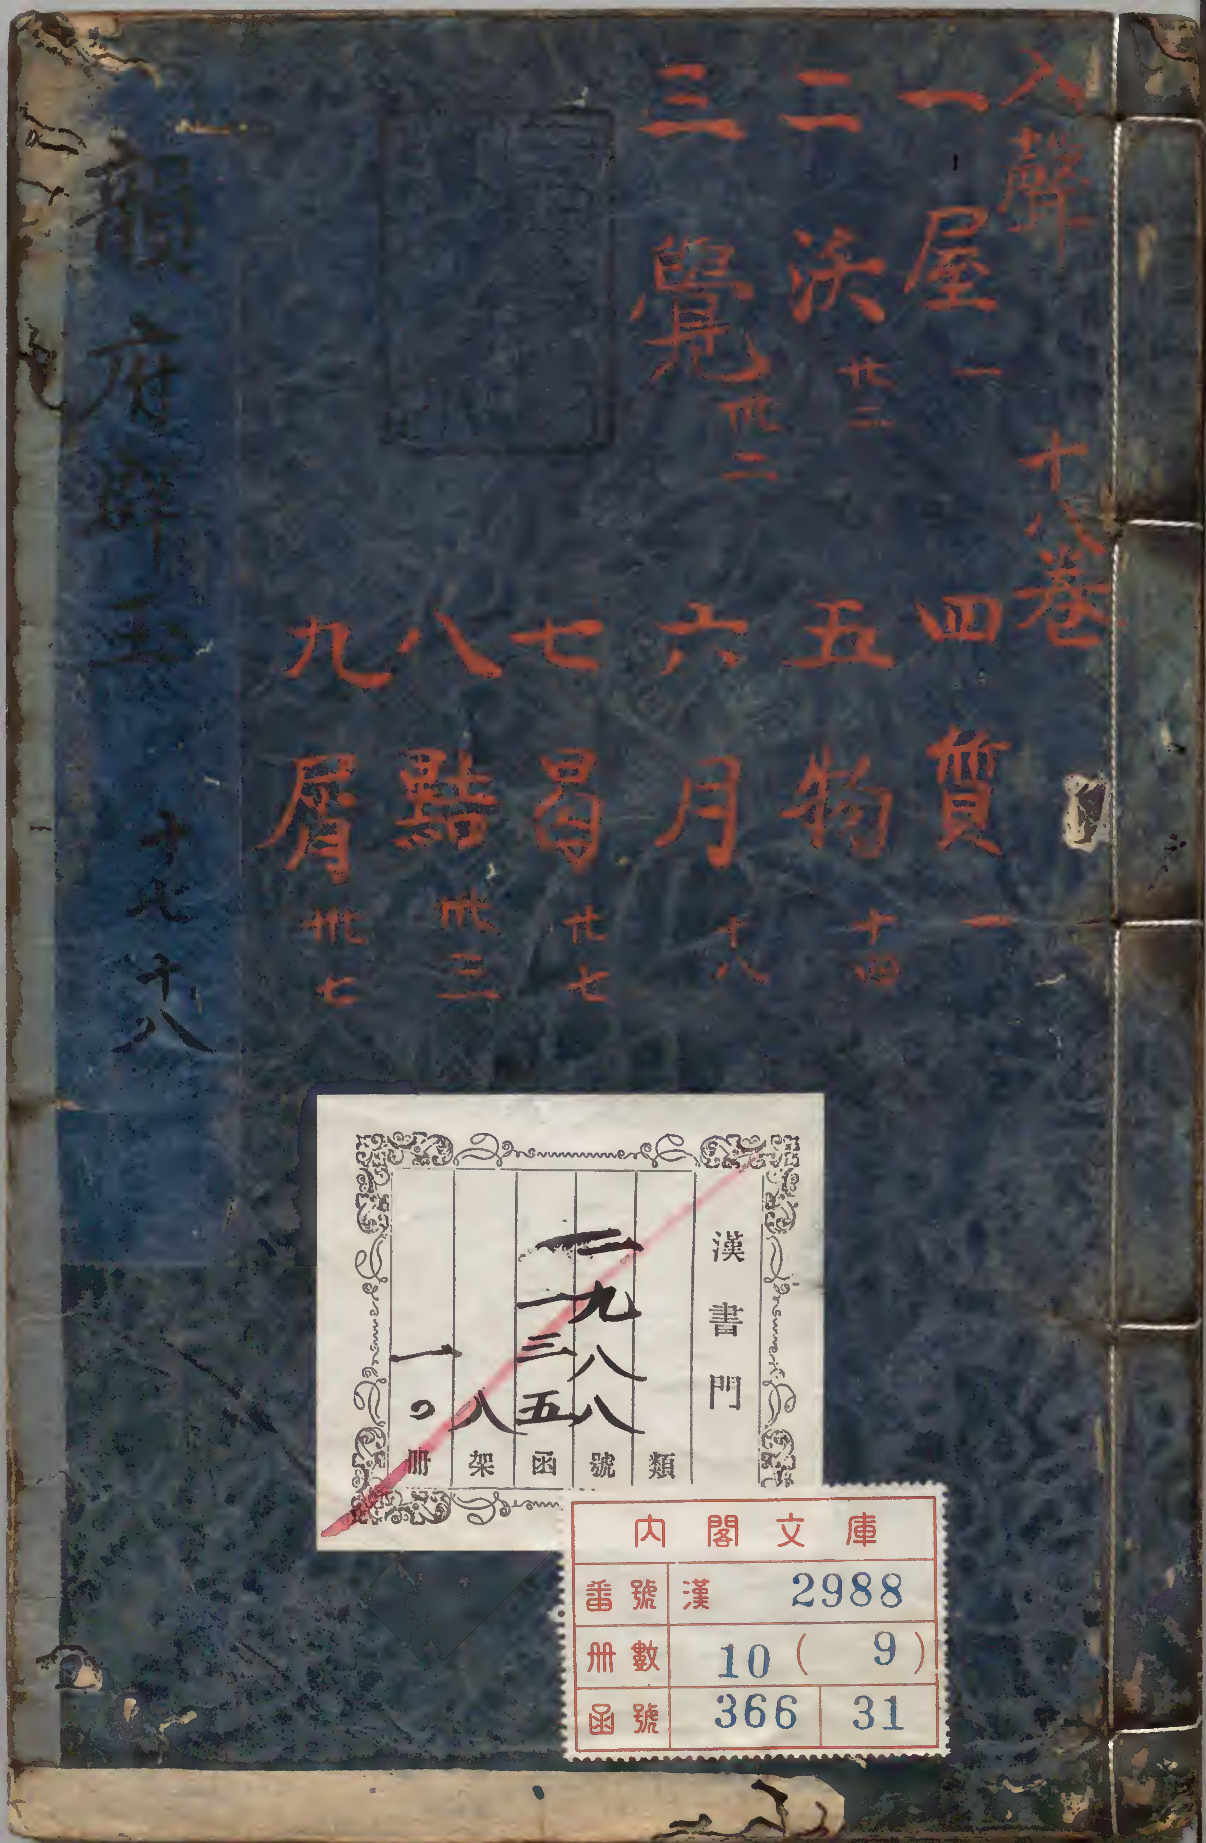 入聲
一屋 一
二沃 廿二
三覺 卅二
十八卷
四質 一
五物 十四
六月 十八
七曷 廿七
八黠 卅三
九屑 卅七
韻府群玉 十七 十八
漢書門
類
二九八八號
一三五函
八架
一〇冊
內閣文庫
番號 漢 2988
冊數 10(9)
函號 366 31